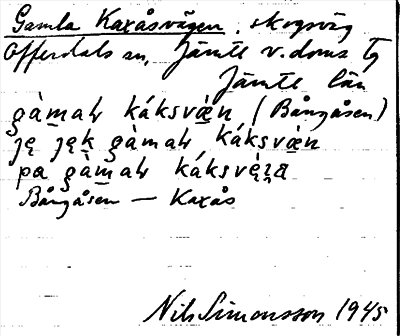 Gamla Kaxåsvägen, skogsväg
Offerdals sn, Jämtl v. doms tg
Jämtl län
gàmaɫ káksvæ̀n (Bångåsen)
ję ję̀k gàmaɫ káksvæ̀n
pa gàmaɫ káksvę̀ʒa
Bångåsen — Kaxås
Nils Simonsson 1945